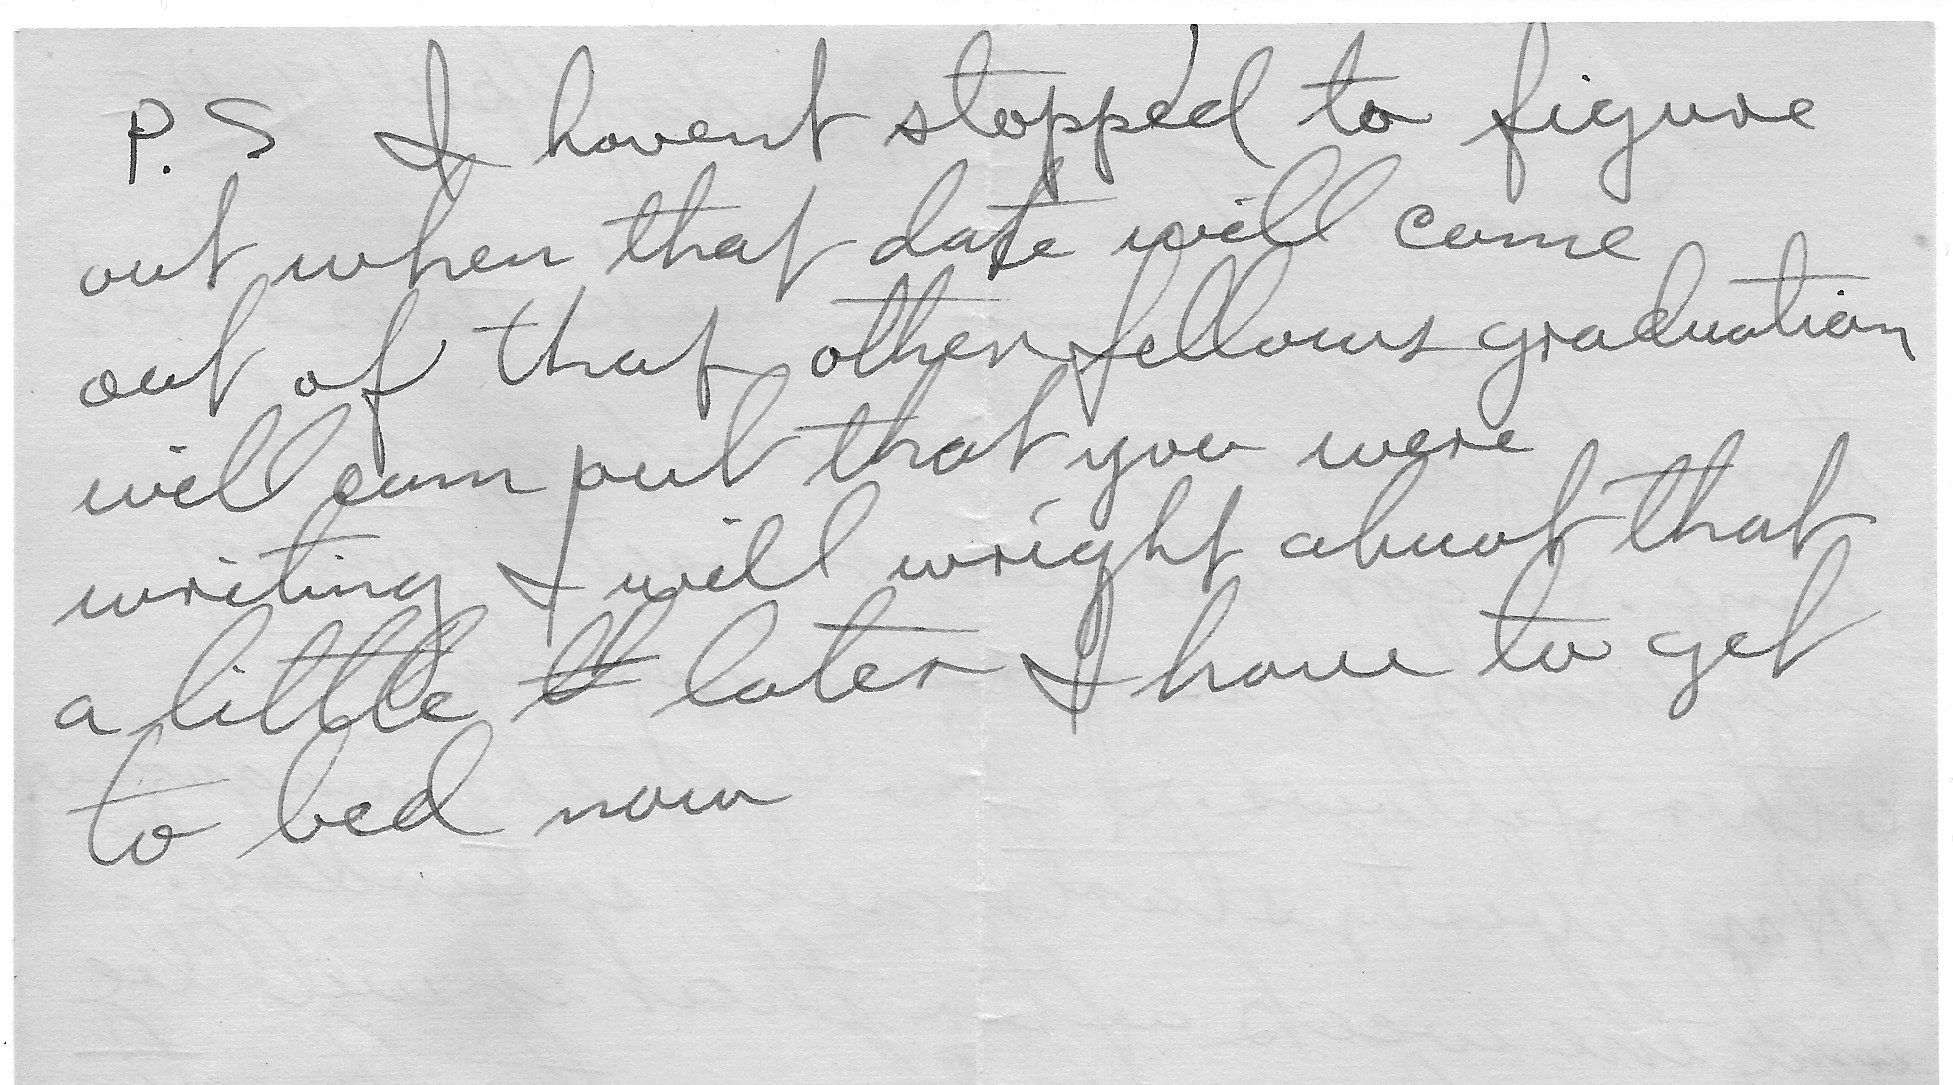 P.S I havent stopped to figure
out when that date will come
out of that other fellows graduation
will cum out that you were
writing I will wright about that
a little later I have to get
to bed now